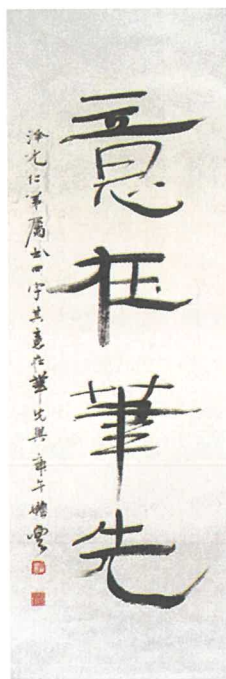 意在筆先
仁弟屬書四字其意在筆先與 庚午